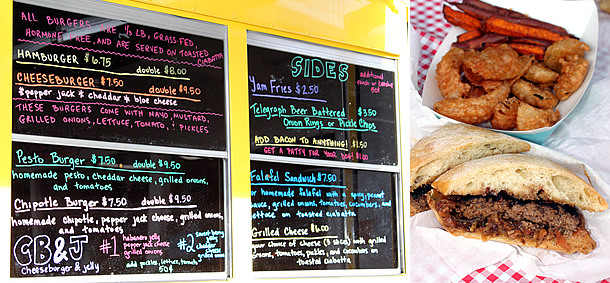 ALL BURGERS 1/4 LB, GRASS-FED,
HORMONE FREE, AND ARE SERVED ON TOASTED
CIABATTA
HAMBURGER $6.75 double $8.00
CHEESEBURGER $7.50 double $9.50
*pepper jack * cheddar * bloe cheese
THESE BURGERS COME WITH MAYO, MUSTARD,
GRILLED ONIONS, LETTUCE, TOMATO, & PICKLES
Pesto Burger $7.50 double $9.50
homemade pesto, cheddar cheese, grilled onions,
and tomatoes
Chipotle Burger $7.50 double $9.50
homemade chipotle, pepper jack cheese, grilled onions,
and tomatoes
CB&J
Cheeseburger & jelly
#1 habanero jelly
pepper jack cheese
grilled onions
#2 sweet berry
jelly
cheddar cheese
grilled onions
add pickles, lettuce, tomato
50¢
SIDES
additional
ranch or
50¢
Yam Fries $2.50
Telegraph Beer Battered $3.50
Onion Rings or Pickle Chips
ADD BACON TO ANYTHING! $1.50
GET A PATTY FOR YOUR DOG! $1.00
Falafel Sandwich $7.50
our homemade falafel with a spicy, peanut
sauce, grilled onions, tomatoes, cucumbers, and
lettuce on toasted ciabatta
Grilled Cheese $6.00
your choice of cheese (3 slices) with grilled
onions, tomatoes, pickles, and cucumbers on
toasted ciabatta